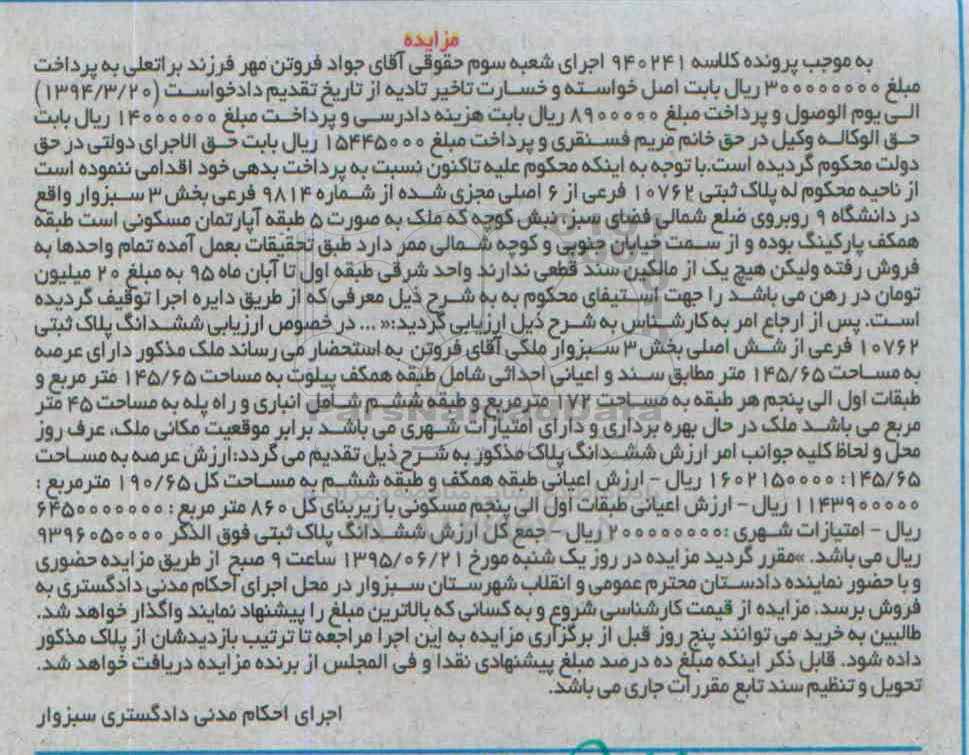 مزایده
به موجب پرونده کلاسه ۹۴۰۲۴۱ اجرای شعبه سوم حقوقی آقای جواد فروتن مهر فرزند براتعلی به پرداخت
مبلغ ۳۰۰۰۰۰۰۰۰ ریال بابت اصل خواسته و خسارت تاخیر تادیه از تاریخ تقدیم دادخواست (۱۳۹۴/۳/۲۰)
الی یوم الوصول و پرداخت مبلغ ۸۹۰۰۰۰۰ ریال بابت هزینه دادرسی و پرداخت مبلغ ۱۴۰۰۰۰۰۰ ریال بابت
حق الوکاله وکیل در حق خانم مریم فسنقری و پرداخت مبلغ ۱۵۴۴۵۰۰۰ ریال بابت حق الاجرای دولتی در حق
دولت محکوم گردیده است.با توجه به اینکه محکوم علیه تاکنون نسبت به پرداخت بدهی خود اقدامی ننموده است
از ناحیه محکوم له پلاک ثبتی ۱۰۷۶۲ فرعی از ۶ اصلی مجزی شده از شماره ۹۸۱۴ فرعی بخش ۳ سبزوار واقع
در دانشگاه ۹ روبروی ضلع شمالی فضای سبز، نبش کوچه که ملک به صورت ۵ طبقه آپارتمان مسکونی است طبقه
همکف پارکینگ بوده و از سمت خیابان جنوبی و کوچه شمالی ممر دارد طبق تحقیقات بعمل آمده تمام واحدها به
فروش رفته ولیکن هیچ یک از مالکین سند قطعی ندارند واحد شرقی طبقه اول تا آبان ماه ۹۵ به مبلغ ۲۰ میلیون
تومان در رهن می باشد را جهت استیفای محکوم به به شرح ذیل معرفی که از طریق دایره اجرا توقیف گردیده
است. پس از ارجاع امر به کارشناس به شرح ذیل ارزیابی گردید:« ... در خصوص ارزیابی ششدانگ پلاک ثبتی
۱۰۷۶۲ فرعی از شش اصلی بخش ۳ سبزوار ملکی آقای فروتن به استحضار می رساند ملک مذکور دارای عرصه
به مساحت ۱۴۵/۶۵ متر مطابق سند و اعیانی احداثی شامل طبقه همکف پیلوت به مساحت ۱۴۵/۶۵ متر مربع و
طبقات اول الی پنجم هر طبقه به مساحت ۱۷۲ مترمربع و طبقه ششم شامل انباری و راه پله به مساحت ۴۵ متر
مربع می باشد ملک در حال بهره برداری و دارای امتیازات شهری می باشد برابر موقعیت مکانی ملک، عرف روز
محل و لحاظ کلیه جوانب امر ارزش ششدانگ پلاک مذکور به شرح ذیل تقدیم می گردد:ارزش عرصه به مساحت
۱۴۵/۶۵: ۱۶۰۲۱۵۰۰۰۰ ریال - ارزش اعیانی طبقه همکف و طبقه ششم به مساحت کل ۱۹۰/۶۵ مترمربع :
۱۱۴۳۹۰۰۰۰۰ ریال - ارزش اعیانی طبقات اول الی پنجم مسکونی با زیربنای کل ۸۶۰ متر مربع : ۶۴۵۰۰۰۰۰۰۰
ریال - امتیازات شهری :۲۰۰۰۰۰۰۰۰ ریال - جمع کل ارزش ششدانگ پلاک ثبتی فوق الذکر ۹۳۹۶۰۵۰۰۰۰
ریال می باشد. »مقرر گردید مزایده در روز یک شنبه مورخ ۱۳۹۵/۰۶/۲۱ ساعت ۹ صبح از طریق مزایده حضوری
و با حضور نماینده دادستان محترم عمومی و انقلاب شهرستان سبزوار در محل اجرای احکام مدنی دادگستری به
فروش برسد. مزایده از قیمت کارشناسی شروع و به کسانی که بالاترین مبلغ را پیشنهاد نمایند واگذار خواهد شد.
طالبین به خرید می توانند پنج روز قبل از برگزاری مزایده به این اجرا مراجعه تا ترتیب بازدیدشان از پلاک مذکور
داده شود. قابل ذکر اینکه مبلغ ده درصد مبلغ پیشنهادی نقدا و فی المجلس از برنده مزایده دریافت خواهد شد.
تحویل و تنظیم سند تابع مقررات جاری می باشد.
اجرای احکام مدنی دادگستری سبزوار
ParsNamadData